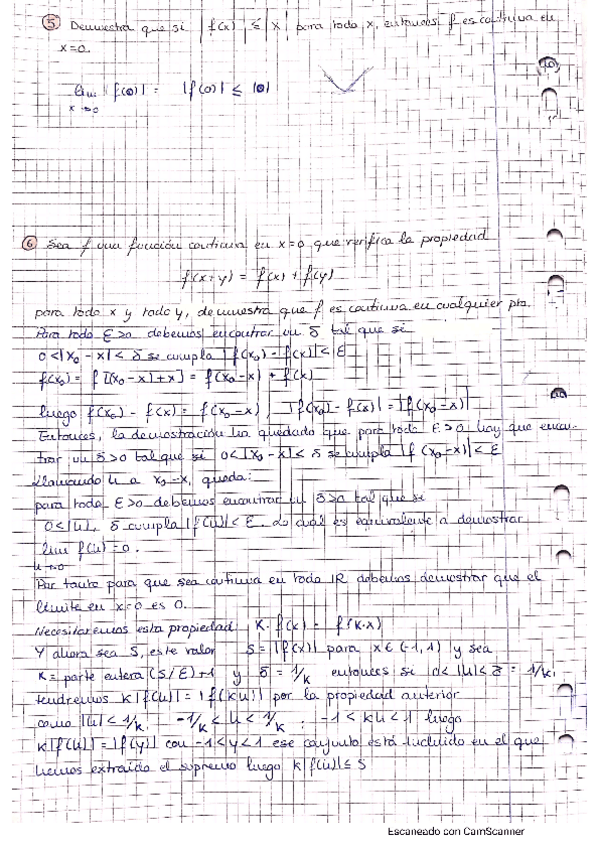 ⑤ Demuestra que si |f(x)| ≤ |x| para todo x, entonces f es continua en
x=0.
lim |f(0)| = |f(0)| ≤ |0|
x→0
⑥ Sea f una función continua en x=0 que verifica la propiedad
f(x+y) = f(x) + f(y)
para todo x y todo y, demuestra que f es continua en cualquier pto.
Para todo ε>0 debemos encontrar un δ tal que si
0<|x₀-x|<δ se cumpla |f(x₀)-f(x)|<ε
f(x₀) = f[(x₀-x)+x] = f(x₀-x) + f(x)
luego f(x₀) - f(x) = f(x₀-x), |f(x₀)-f(x)| = |f(x₀-x)|
Entonces, la demostración ha quedado que para todo ε>0 hay que encon-
trar un δ>0 tal que si 0<|x₀-x|<δ se cumpla |f(x₀-x)|<ε
Llamando u a x₀-x, queda:
para todo ε>0 debemos encontrar un δ>0 tal que si
0<|u| δ cumpla |f(u)|<ε. Lo cual es equivalente a demostrar
lim f(u)=0.
u→0
Por tanto para que sea continua en todo IR debemos demostrar que el
límite en x=0 es 0.
Necesitaremos esta propiedad K·f(x) = f(K·x)
Y ahora sea S, este valor S=|f(x)| para x∈(-1,1) y sea
K = parte entera (S/ε)+1 y δ = 1/K entonces si 0<|u|<δ = 1/K,
tendremos K|f(u)| = |f(ku)| por la propiedad anterior
como |u|<1/K, -1/K<u<1/K; -1<ku<1 luego
K|f(u)|=|f(y)| con -1<y<1 ese conjunto está incluido en el que
hemos extraído el supremo luego K|f(u)|≤S
Escaneado con CamScanner